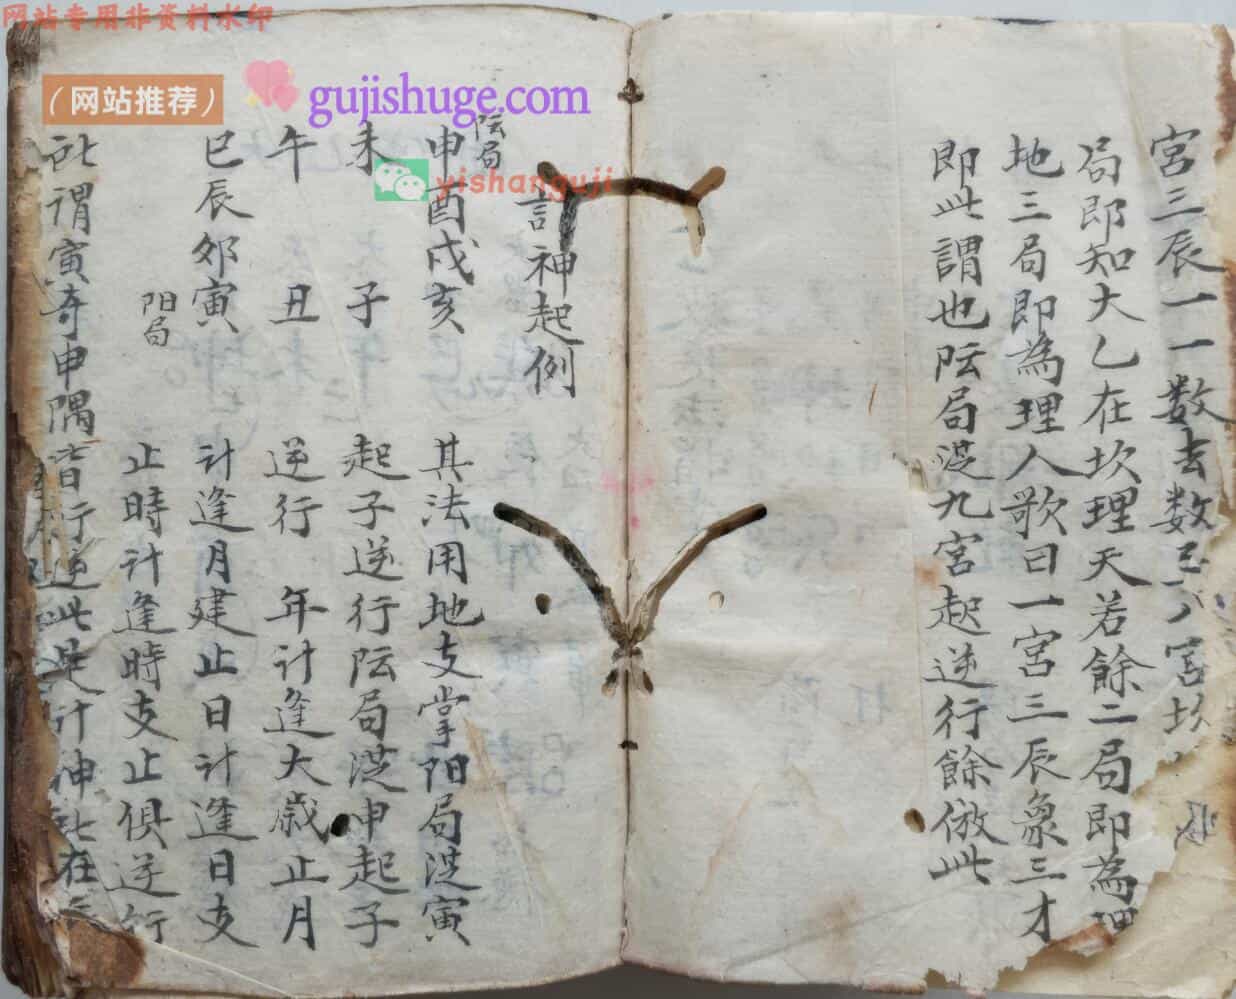 网站专用非资料水印
（网站推荐）
gujishuge.com
yishanguji
宮三辰一一数去数
局即知大乙在坎理天若餘二局即為理
地三局即為理人歌曰一宮三辰象三才
即此謂也阮局逆九宮起逆行餘倣此
計神起例
阮局
申酉戌亥
其法用地支掌阳局逆寅
未
子
起子逆行阮局逆申起子
午
丑
逆行
年計逢大歲止月
巳辰夘寅
計逢月建止日計逢日支
阳局
止時計逢時支止俱逆行
謂寅奇申隅皆行逆此是計神
在